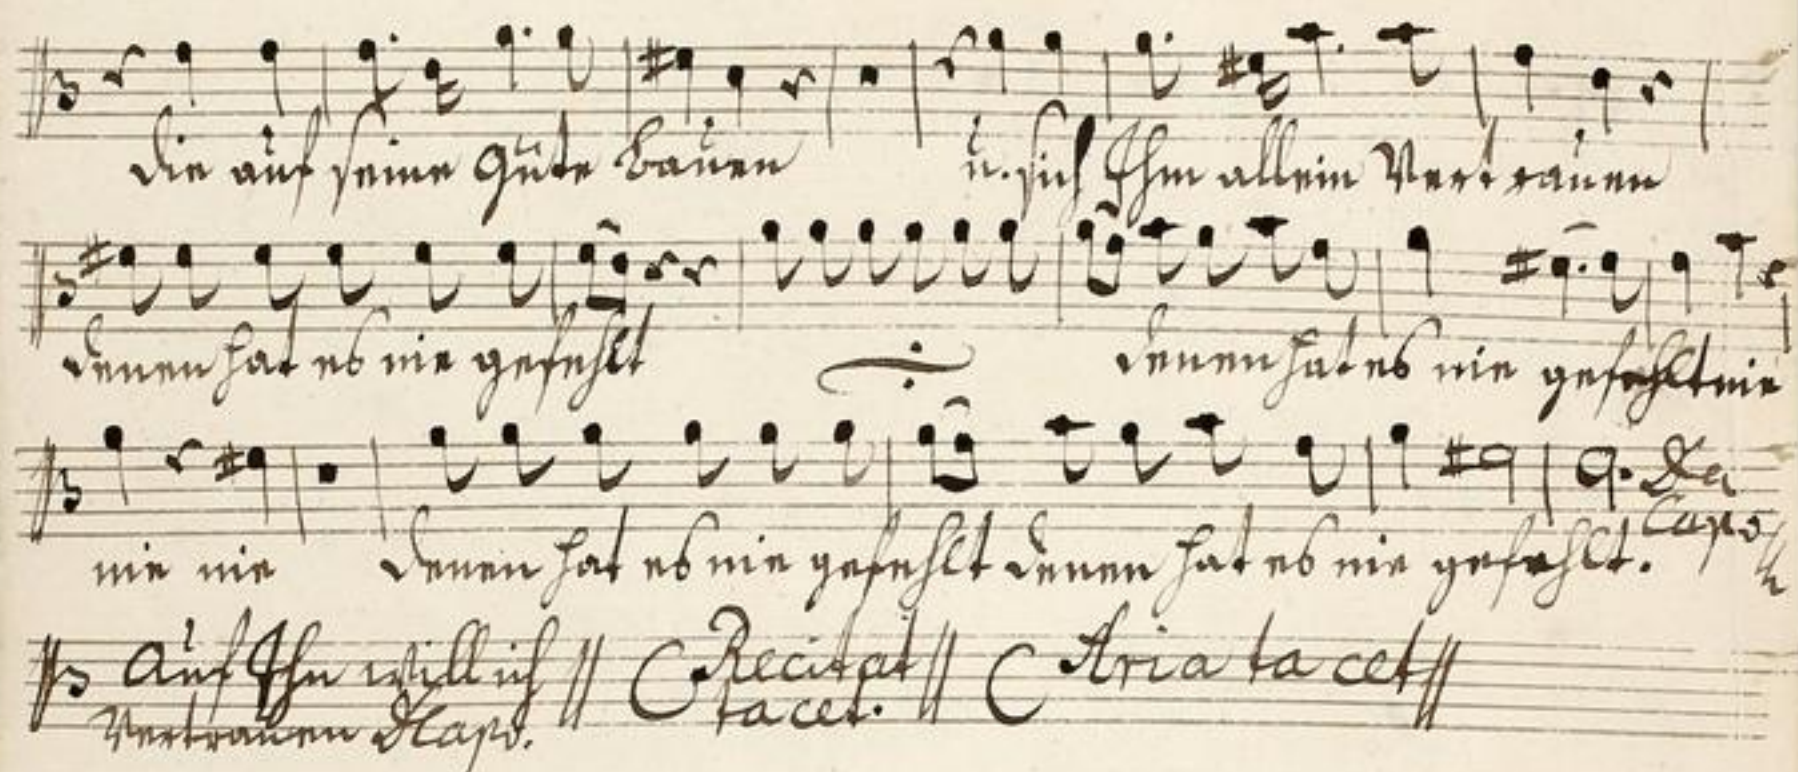 die auf seine Güte bauen u. sich Ihm allein Vertrauen
denen hat es nie gefehlt denen hat es nie gefehlt nie
nie nie denen hat es nie gefehlt denen hat es nie gefehlt. Da
Capo
Auf Ihn will ich Recitat Aria tacet
Vertrauen DCapo. tacet.